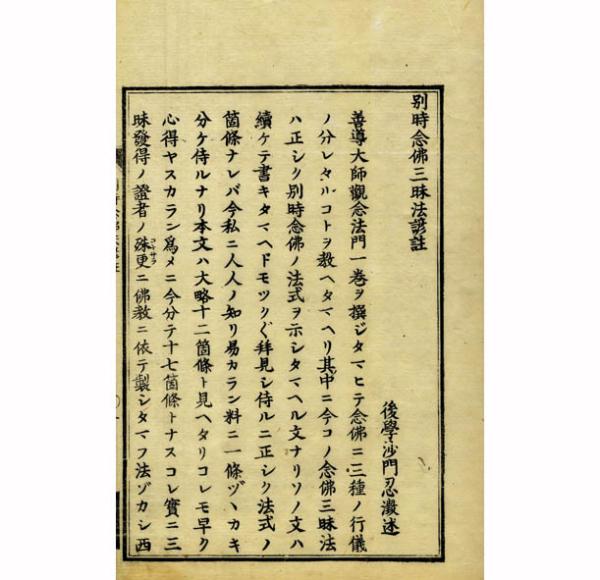 別時念佛三昧法諺註
後學沙門忍澂述
善導大師觀念法門一卷ヲ撰ジタマヒテ念佛ニ三種ノ行儀
ノ分レタルコトヲ教ヘタマヘリ其中ニ今コノ念佛三昧法
ハ正シク別時念佛ノ法式ヲ示シタマヘル文ナリソノ文ハ
續ケテ書キタマヘドモツク〲拜見シ侍ルニ正シク法式ノ
箇條ナレバ今私ニ人人ノ知リ易カラン料ニ一條ヅヽカキ
分ケ侍ルナリ本文ハ大略十二箇條ト見ヘタリコレモ早ク
心得ヤスカラン爲メニ今分テ十七箇條トナスコレ實ニ三
昧發得ノ證者ノ殊更ニ佛教ニ依テ製シタマフ法ゾカシ西